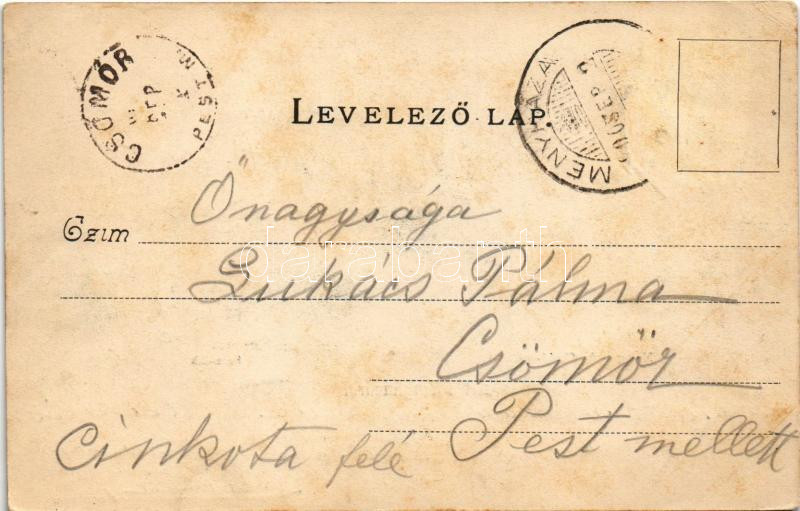 CSÖMÖR
PEST M
LEVELEZŐ LAP.
MENYHÁZA
SEP
Őnagysága
Czim
Lukács Pálma
Csömör
Cinkota felé Pest mellett
darabanth